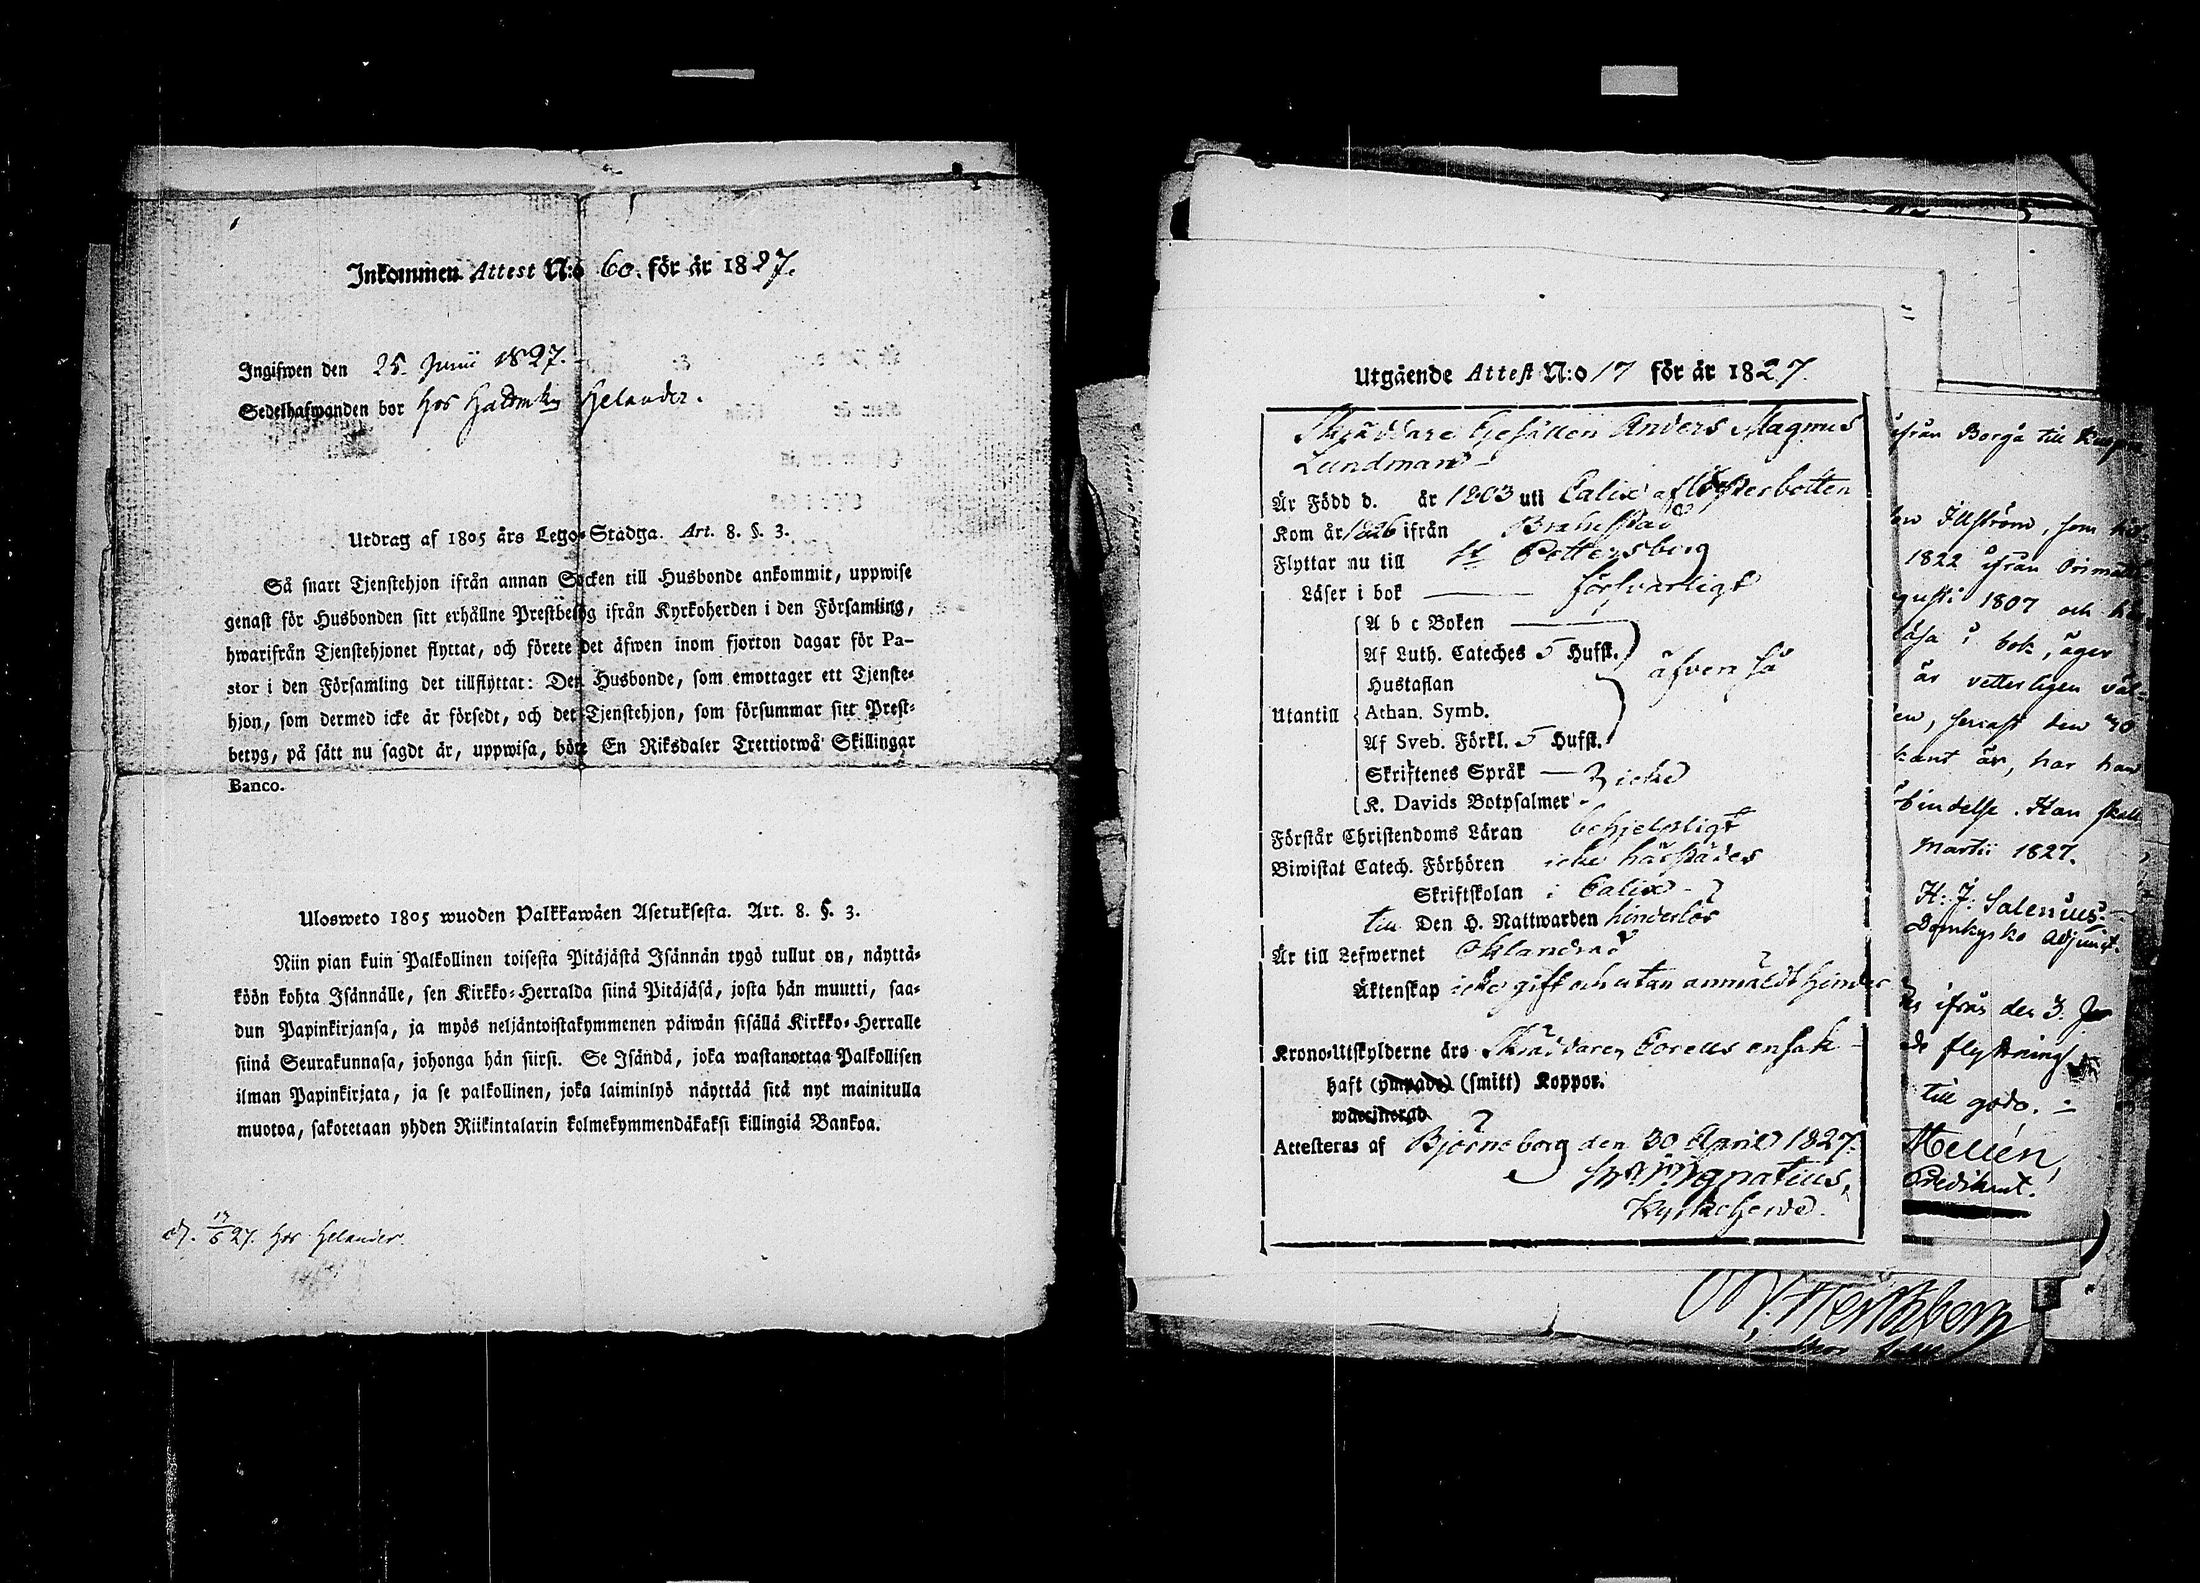 Inkommen Attest N:o 60. för år 1827.
Ingifwen den 25. Junii 1827.
Sedelhafwanden bor hos Helander.
Utdrag af 1805 års Lego-Stadga. Art. 8. §. 3.
Så snart Tjenstehjon ifrån annan Socken till Husbonde ankommit, uppwise
genast för Husbonden sitt erhållne Prestbetyg ifrån Kyrkoherden i den Församling,
hwarifrån Tjenstehjonet flyttat, och förete det äfwen inom fjorton dagar för Pa-
stor i den Församling det tillflyttat: Den Husbonde, som emottager ett Tjenste-
hjon, som dermed icke är försedt, och det Tjenstehjon, som försummar sitt Prest-
betyg, på sätt nu sagdt är, uppwisa, böte En Riksdaler Trettiotwå Skillingar
Banco.
Ulosweto 1805 wuoden Palkkawäen Asetuksesta. Art. 8. §. 3.
Niin pian kuin Palkollinen toisesta Pitäjästä Isännän tygö tullut on, näyttä-
köön kohta Isännälle, sen Kirkko-Herralda siinä Pitäjäsä, josta hän muutti, saa-
dun Papinkirjansa, ja myös neljäntoistakymmenen päiwän sisällä Kirkko-Herralle
siinä Seurakunnasa, johonga hän siirsi. Se Isändä, joka wastanottaa Palkollisen
ilman Papinkirjata, ja se palkollinen, joka laiminlyö näyttää sitä nyt mainitulla
muotoa, sakotetaan yhden Riikintalarin kolmekymmendäkaksi killingiä Bankoa.
27. hos Helander.
Utgående Attest N:o 17 för år 1827.
Skräddare Gesällen Anders Magnus
Lundman
Är Född d. år 1803 uti Calix af Österbotten
Kom år 1826 ifrån Brahestad
Flyttar nu till St Pettersborg
Läser i bok försvarligt
A b c Boken
Af Luth. Cateches 5 Hufst.
äfven så
Hustaflan
Utantill Athan. Symb.
Af Sveb. Förkl. 5 Hufst.
Skriftenes Språk icke
K. Davids Botpsalmer
Förstår Christendoms Läran behjelpligt
Biwistat Catech. Förhören icke härstädes
Skriftskolan i Calix
till Den H. Nattwarden hinderlös
Är till Lefwernet oklandrad
Äktenskap icke gift och utan anmäldt hinder
Krono-Utskylderne äro Skräddaren Corells ensak
haft (ympade) (smitt) Koppor.
waccinerad
Attesteras af Björneborg den 30 April 1827.
Ignatius,
Kyrkoherde.
ifrån Borgå till
Illström, som
1822 ifrån
1807 och
läsa i bok, äger
är vetterligen väl-
senast den 30
är, har han
Han skall
Martii 1827.
H. J. Salenius
Domkyrko Adjunct.
ifrån den 3.
flyttning
till godo.
Mellén,
Predikant.